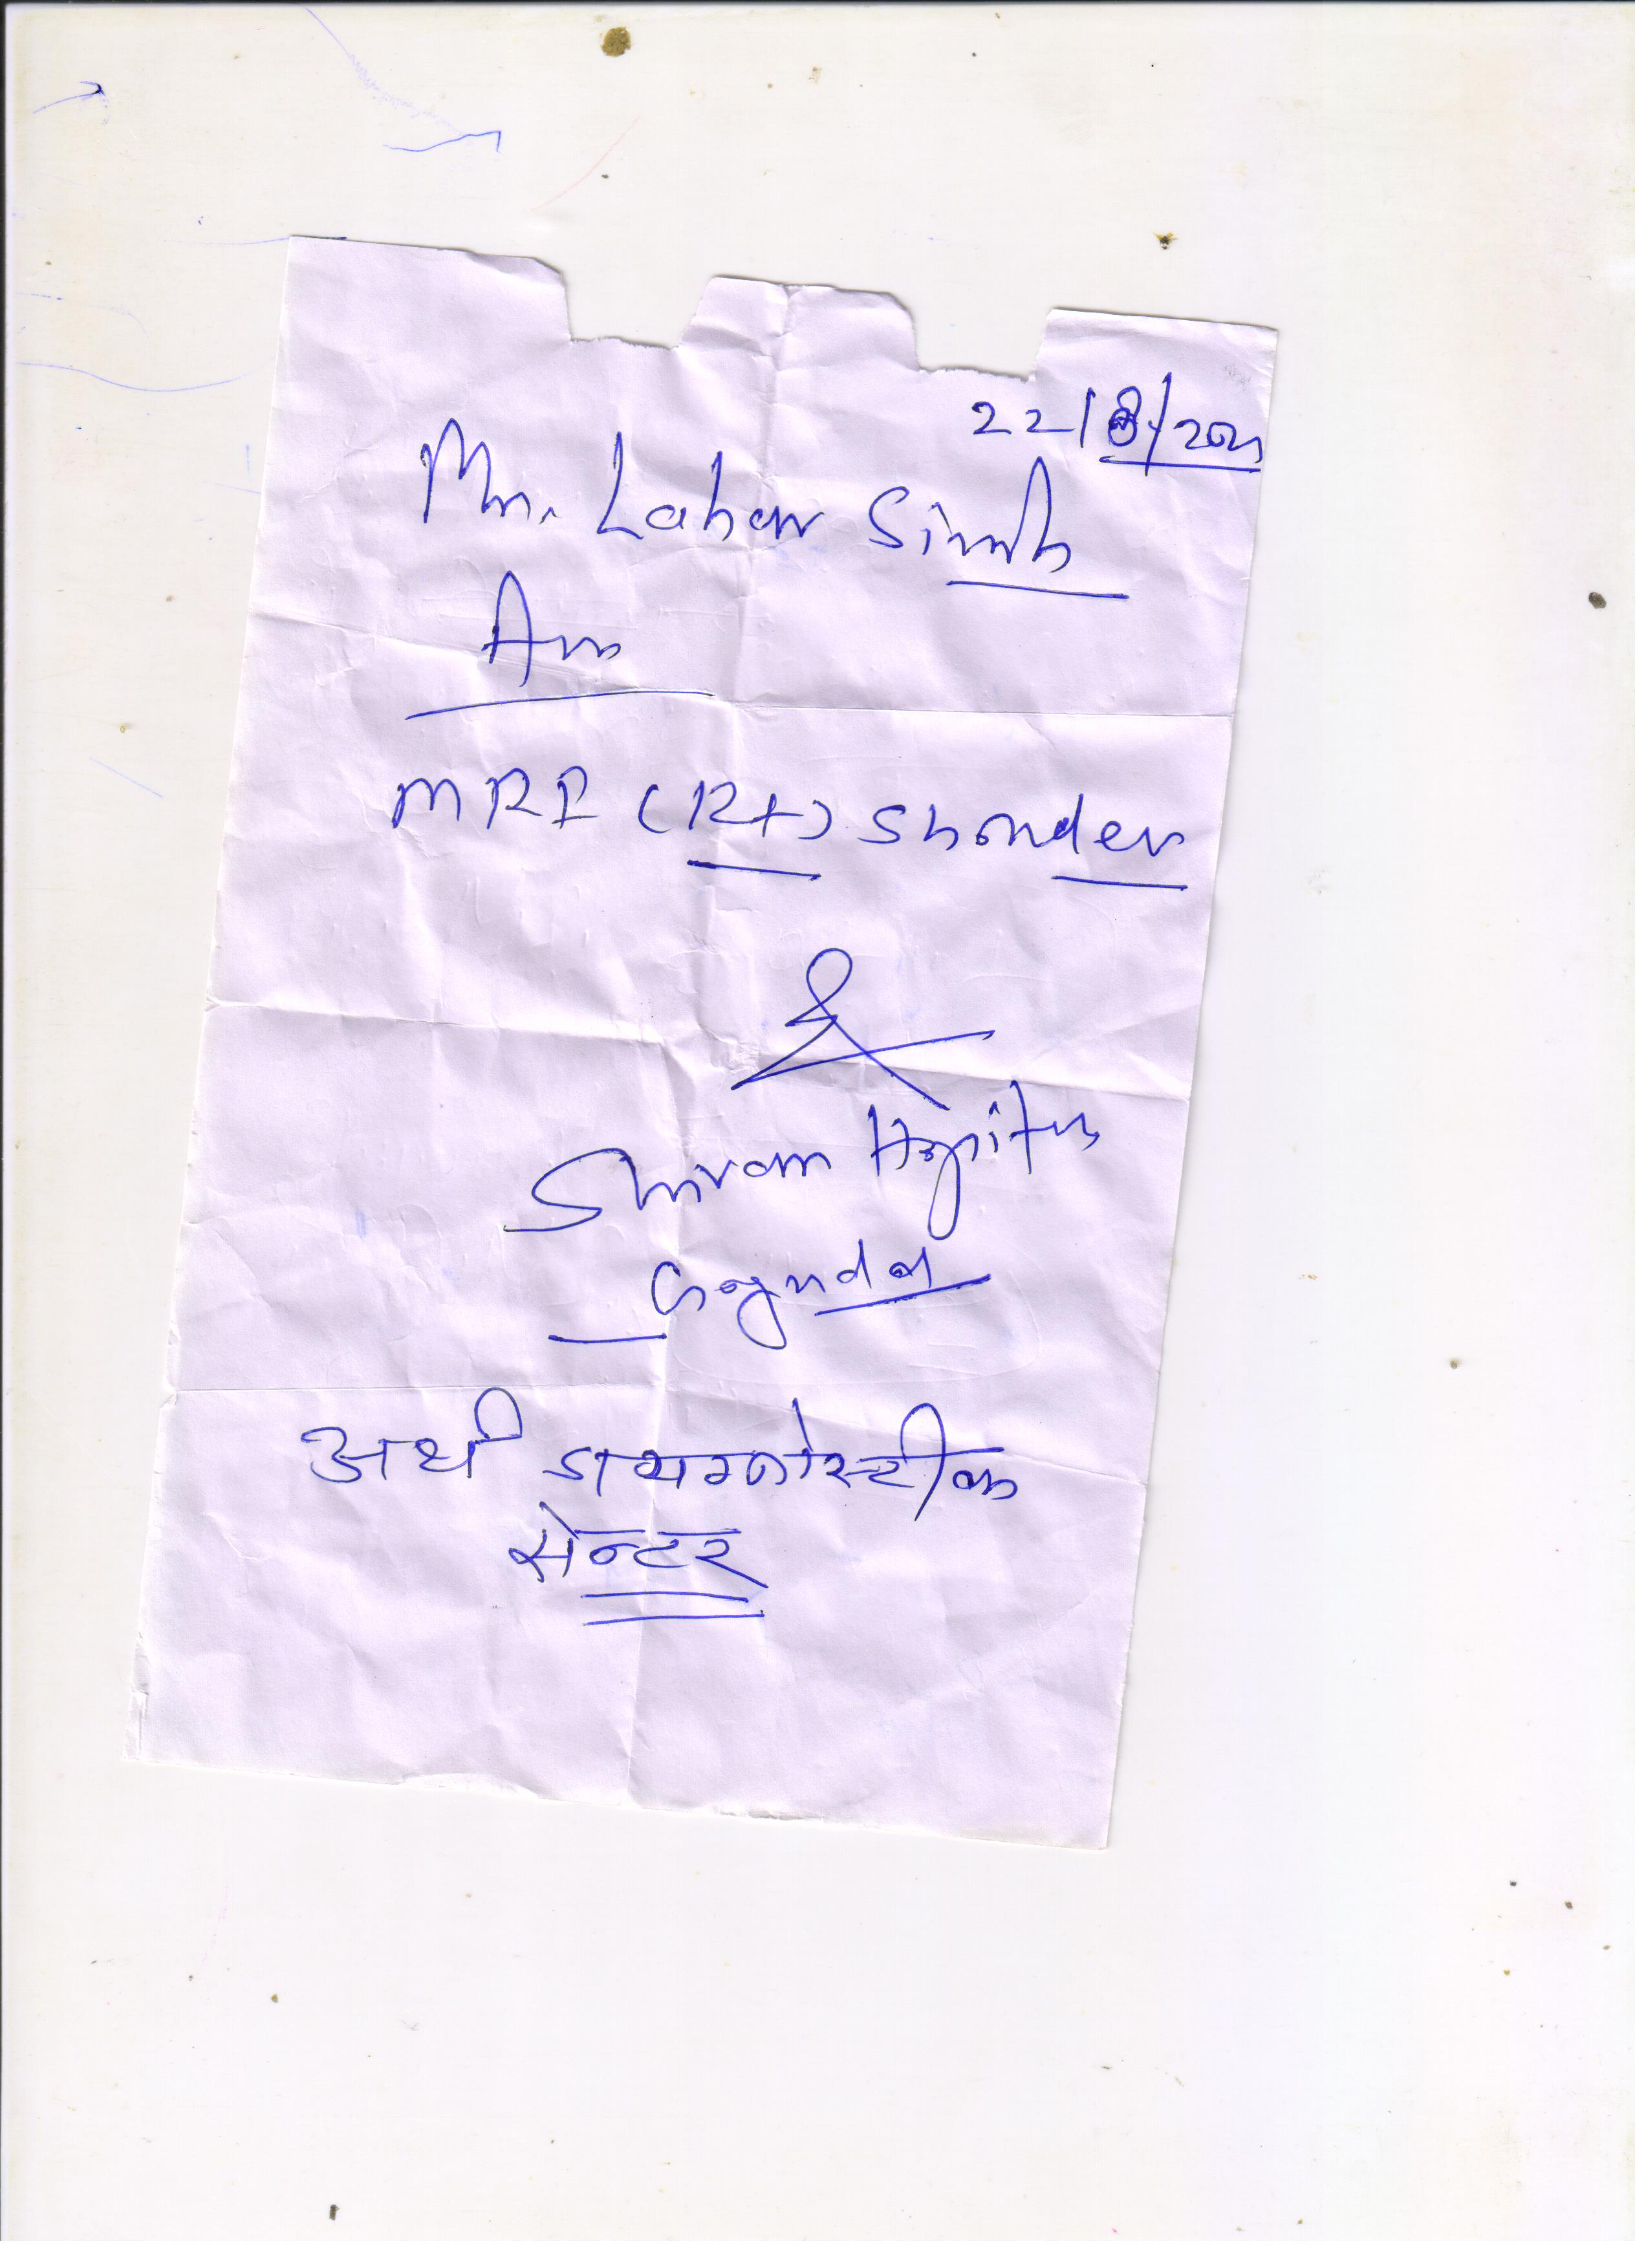 22/8/2021
Mr. Laher Singh
Adv
MRI (Rt) Shoulder
Shivam Hospital
Gogunda
अर्थ डायग्नोस्टीक
सेन्टर